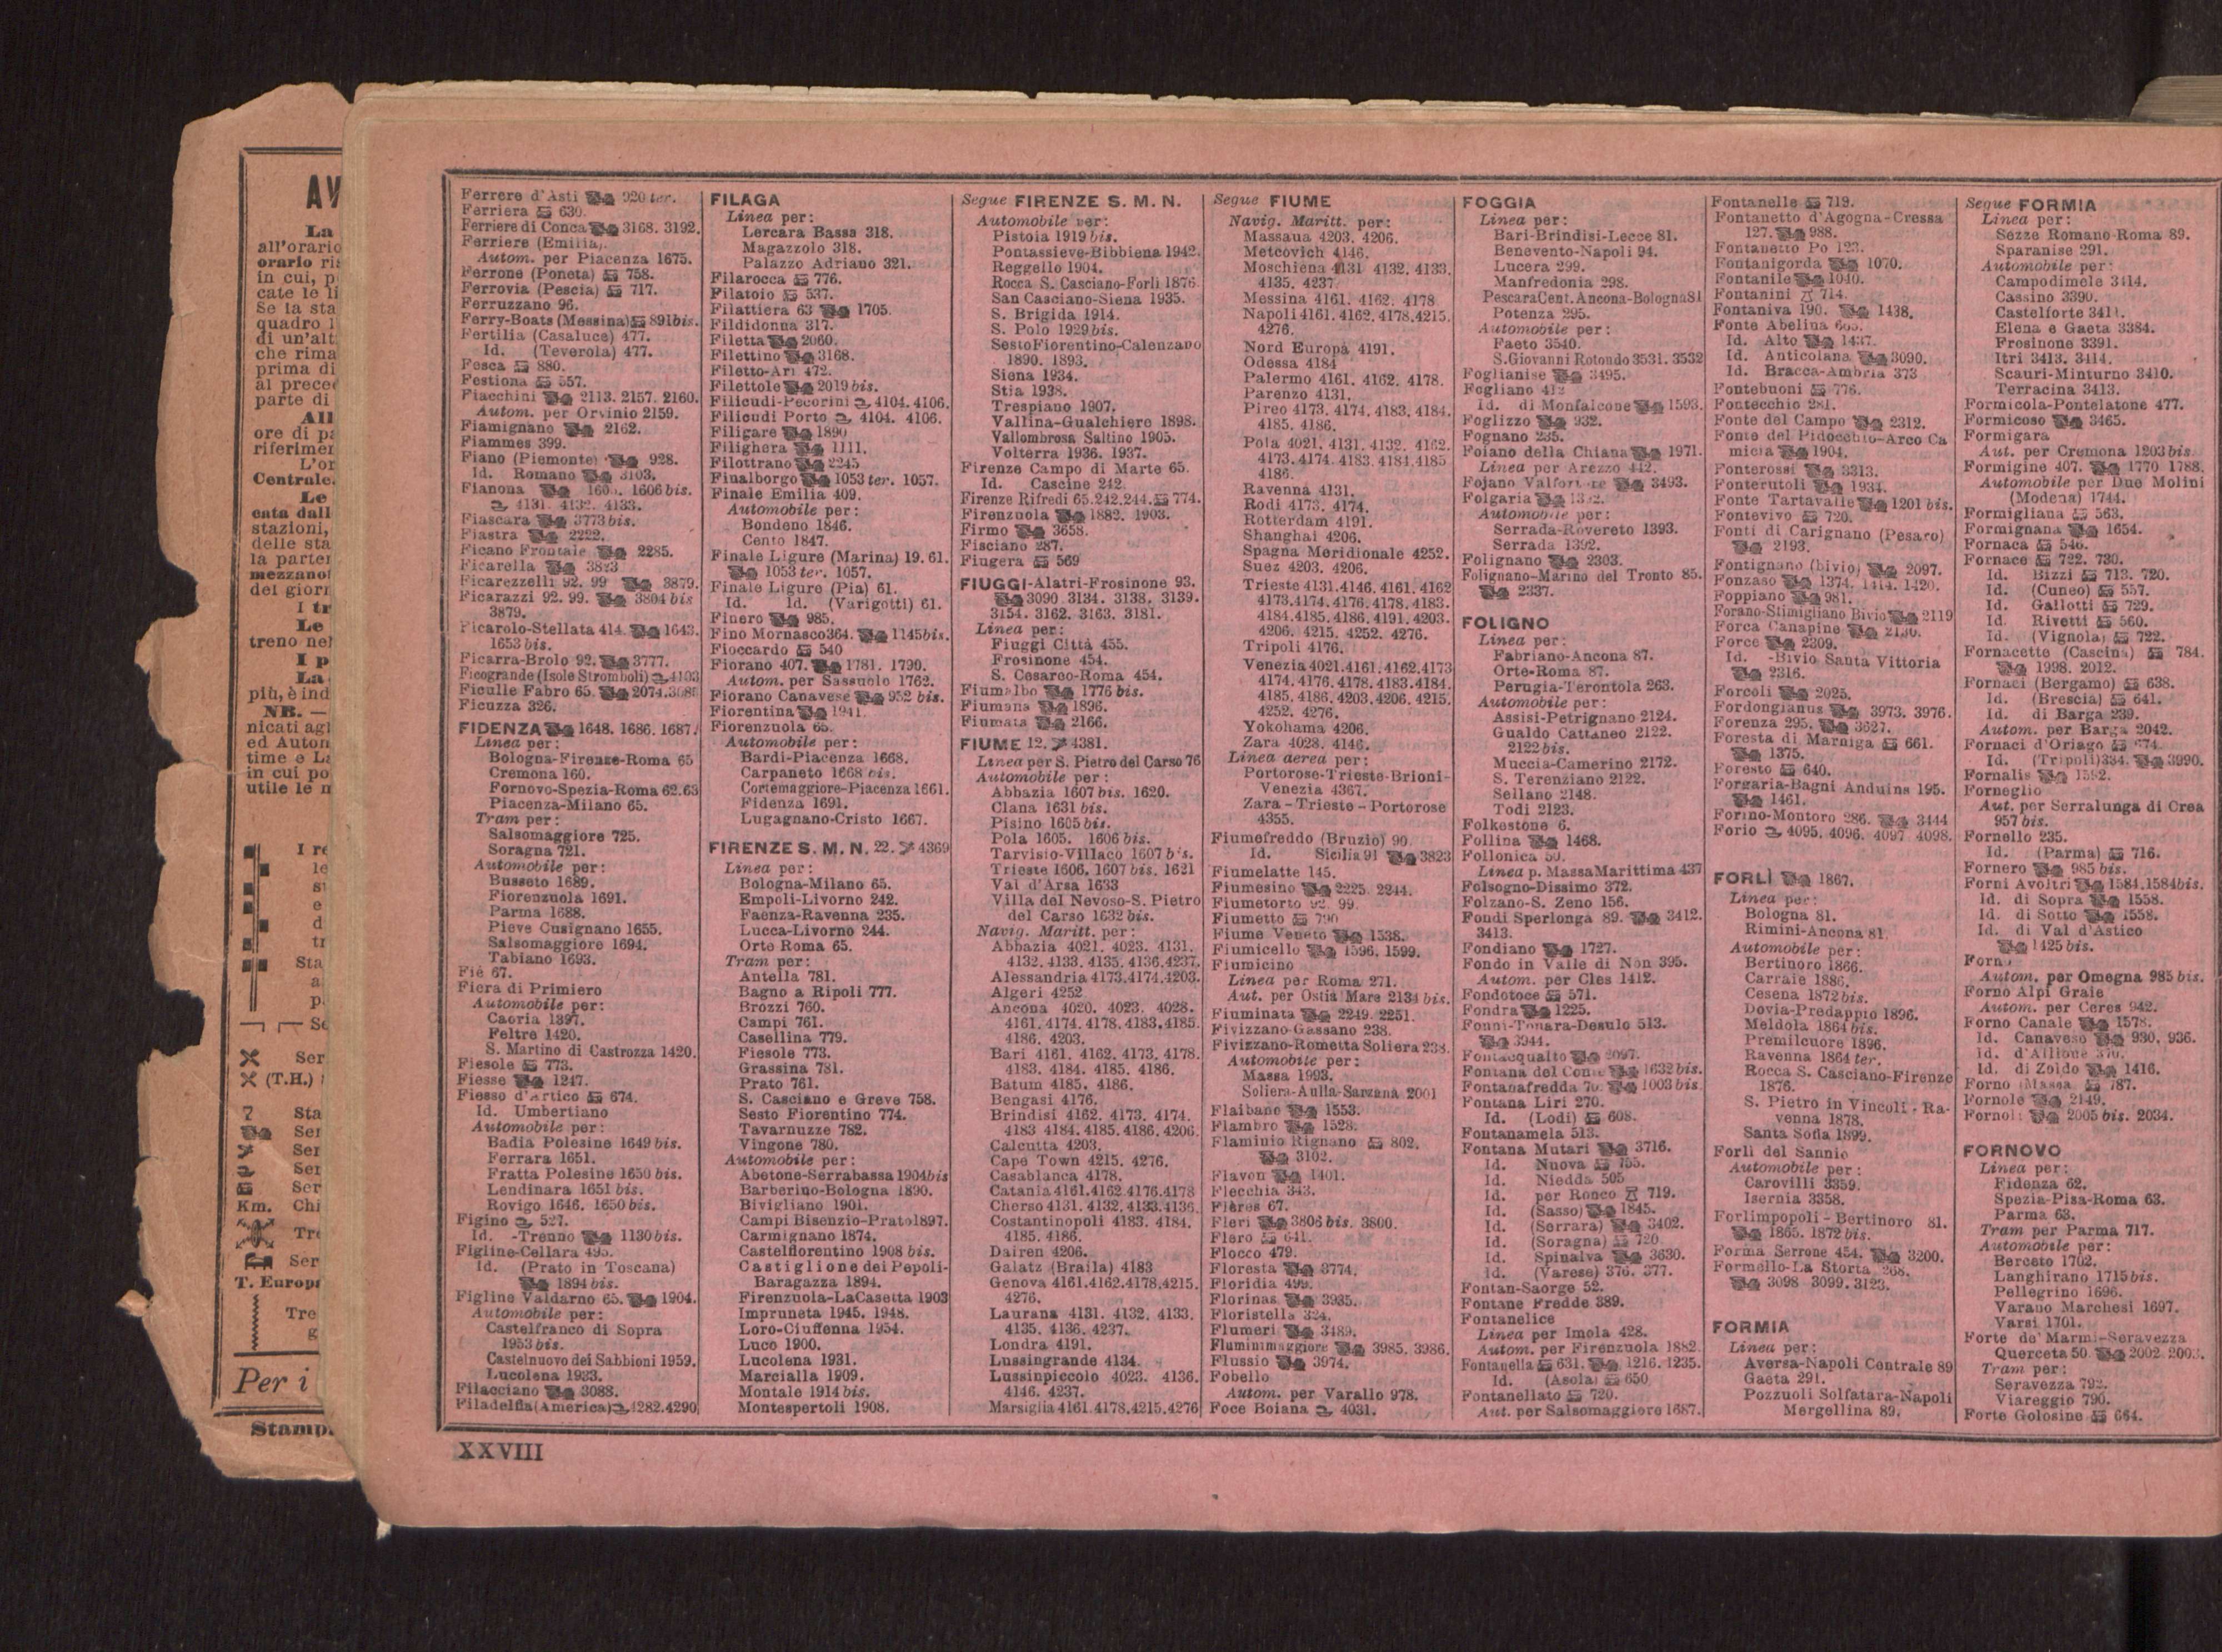 Ferrere d'Asti 920 ter.
Ferriera 630.
Ferriere di Conca 3168. 3192.
Ferriere (Emilia).
Autom. per Piacenza 1675.
Ferrone (Poneta) 758.
Ferrovia (Pescia) 717.
Ferruzzano 96.
Ferry-Boats (Messina) 891bis.
Fertilia (Casaluce) 477.
Id. (Teverola) 477.
Fesca 880.
Festiona 557.
Fiacchini 2113. 2157. 2160.
Autom. per Orvinio 2159.
Fiamignano 2162.
Fiammes 399.
Fiano (Piemonte) 928.
Id. Romano 3103.
Fianona 1605. 1606 bis.
4131. 4132. 4133.
Fiascara 3773 bis.
Fiastra 2222.
Ficano Frontale 2285.
Ficarella 3823
Ficarezzelli 92. 99 3879.
Ficarazzi 92. 99. 3804 bis
3879.
Ficarolo-Stellata 414. 1643.
1653 bis.
Ficarra-Brolo 92. 3777.
Ficogrande (Isole Stromboli) 4103
Ficulle Fabro 65. 2074.
Ficuzza 326.
FIDENZA 1648. 1686. 1687.
Linea per:
Bologna-Firenze-Roma 65
Cremona 160.
Fornovo-Spezia-Roma 62.63
Piacenza-Milano 65.
Tram per:
Salsomaggiore 725.
Soragna 721.
Automobile per:
Busseto 1689.
Fiorenzuola 1691.
Parma 1688.
Pieve Cusignano 1655.
Salsomaggiore 1694.
Tabiano 1693.
Fié 67.
Fiera di Primiero
Automobile per:
Caoria 1397.
Feltre 1420.
S. Martino di Castrozza 1420.
Fiesole 773.
Fiesse 1247.
Fiesso d'Artico 674.
Id. Umbertiano
Automobile per:
Badia Polesine 1649 bis.
Ferrara 1651.
Fratta Polesine 1650 bis.
Lendinara 1651 bis.
Rovigo 1646. 1650 bis.
Figino 527.
Id. -Trenno 1130 bis.
Figline-Cellara 495.
Id. (Prato in Toscana)
1894 bis.
Figline Valdarno 65. 1904.
Automobile per:
Castelfranco di Sopra
1953 bis.
Castelnuovo dei Sabbioni 1959.
Lucolena 1933.
Filacciano 3088.
Filadelfia (America) 4282.4290
FILAGA
Linea per:
Lercara Bassa 318.
Magazzolo 318.
Palazzo Adriano 321.
Filarocca 776.
Filatoio 537.
Filattiera 63 1705.
Fildidonna 317.
Filetta 2060.
Filettino 3168.
Filetto-Ari 472.
Filettole 2019 bis.
Filicudi-Pecorini 4104. 4106.
Filicudi Porto 4104. 4106.
Filigare 1890
Filighera 1111.
Filottrano 2245
Finalborgo 1053 ter. 1057.
Finale Emilia 409.
Automobile per:
Bondeno 1846.
Cento 1847.
Finale Ligure (Marina) 19. 61.
1053 ter. 1057.
Finale Ligure (Pia) 61.
Id. Id. (Varigotti) 61.
Finero 985.
Fino Mornasco 364. 1145bis.
Fioccardo 540
Fiorano 407. 1781. 1790.
Autom. per Sassuolo 1762.
Fiorano Canavese 952 bis.
Fiorentina 1941.
Fiorenzuola 65.
Automobile per:
Bardi-Piacenza 1668.
Carpaneto 1668 bis.
Cortemaggiore-Piacenza 1661.
Fidenza 1691.
Lugagnano-Cristo 1667.
FIRENZE S. M. N. 22. 4369
Linea per:
Bologna-Milano 65.
Empoli-Livorno 242.
Faenza-Ravenna 235.
Lucca-Livorno 244.
Orte Roma 65.
Tram per:
Antella 781.
Bagno a Ripoli 777.
Brozzi 760.
Campi 761.
Casellina 779.
Fiesole 773.
Grassina 781.
Prato 761.
S. Casciano e Greve 758.
Sesto Fiorentino 774.
Tavarnuzze 782.
Vingone 780.
Automobile per:
Abetone-Serrabassa 1904bis
Barberino-Bologna 1890.
Bivigliano 1901.
Campi Bisenzio-Prato 1897.
Carmignano 1874.
Castelfiorentino 1908 bis.
Castiglione dei Pepoli-
Baragazza 1894.
Firenzuola-La Casetta 1903
Impruneta 1945. 1948.
Loro-Ciuffenna 1954.
Luco 1900.
Lucolena 1931.
Marcialla 1909.
Montale 1914 bis.
Montespertoli 1908.
Segue FIRENZE S. M. N.
Automobile per:
Pistoia 1919 bis.
Pontassieve-Bibbiena 1942.
Reggello 1904.
Rocca S. Casciano-Forlì 1876
San Casciano-Siena 1935.
S. Brigida 1914.
S. Polo 1929 bis.
Sesto Fiorentino-Calenzano
1890. 1893.
Siena 1934.
Stia 1938.
Trespiano 1907.
Vallina-Gualchiere 1898.
Vallombrosa Saltino 1905.
Volterra 1936. 1937.
Firenze Campo di Marte 65.
Id. Cascine 242
Firenze Rifredi 65.242.244. 774.
Firenzuola 1882. 1903.
Firmo 3658.
Fisciano 287.
Fiugera 569
FIUGGI-Alatri-Frosinone 93.
3090 3134. 3138. 3139.
3154. 3162. 3163. 3181.
Linea per:
Fiuggi Città 455.
Frosinone 454.
S. Cesareo-Roma 454.
Fiumalbo 1776 bis.
Fiumana 1896.
Fiumata 2166.
FIUME 12. 4381.
Linea per S. Pietro del Carso 76
Automobile per:
Abbazia 1607 bis. 1620.
Clana 1631 bis.
Pisino 1605 bis.
Pola 1605. 1606 bis.
Tarvisio-Villaco 1607 bis.
Trieste 1606. 1607 bis. 1621
Val d'Arsa 1633
Villa del Nevoso-S. Pietro
del Carso 1632 bis.
Navig. Maritt. per:
Abbazia 4021. 4023. 4131.
4132. 4133. 4135. 4136. 4237.
Alessandria 4173.4174.4203.
Algeri 4252
Ancona 4020. 4023. 4028.
4161. 4174. 4178. 4183. 4185.
4186. 4203.
Bari 4161. 4162. 4173. 4178.
4183. 4184. 4185. 4186.
Batum 4185. 4186.
Bengasi 4176.
Brindisi 4162. 4173. 4174.
4183 4184. 4185. 4186. 4206
Calcutta 4203.
Cape Town 4215. 4276.
Casablanca 4178.
Catania 4161.4162.4176.4178
Cherso 4131. 4132. 4133.4136.
Costantinopoli 4183. 4184.
4185. 4186.
Dairen 4206.
Galatz (Braila) 4183
Genova 4161.4162.4178.4215.
4276.
Laurana 4131. 4132. 4133.
4135. 4136. 4237.
Londra 4191.
Lussingrande 4134.
Lussinpiccolo 4023. 4136.
4146. 4237.
Marsiglia 4161.4178.4215.4276
Segue FIUME
Navig. Maritt. per:
Massaua 4203. 4206.
Metcovich 4146.
Moschiena 4131 4132. 4133.
4135. 4237.
Messina 4161. 4162. 4178
Napoli 4161. 4162. 4178.4215.
4276.
Nord Europa 4191.
Odessa 4184
Palermo 4161. 4162. 4178.
Parenzo 4131.
Pireo 4173. 4174. 4183. 4184.
4185. 4186.
Pola 4021. 4131. 4132. 4162.
4173. 4174. 4183. 4184. 4185
4186.
Ravenna 4131.
Rodi 4173. 4174.
Rotterdam 4191.
Shanghai 4206.
Spagna Meridionale 4252.
Suez 4203. 4206.
Trieste 4131.4146. 4161. 4162
4173.4174. 4176. 4178. 4183.
4184.4185. 4186. 4191. 4203.
4206. 4215. 4252. 4276.
Tripoli 4176.
Venezia 4021.4161.4162.4173
4174. 4176. 4178. 4183.4184.
4185. 4186. 4203. 4206. 4215.
4252. 4276.
Yokohama 4206.
Zara 4028. 4146.
Linea aerea per:
Portorose-Trieste-Brioni-
Venezia 4367.
Zara - Trieste - Portorose
4355.
Fiumefreddo (Bruzio) 90.
Id. Sicilia 91 3823
Fiumelatte 145.
Fiumesino 2225. 2244.
Fiumetorto 92. 99.
Fiumetto 790
Fiume Veneto 1538.
Fiumicello 1596. 1599.
Fiumicino
Linea per Roma 271.
Aut. per Ostia Mare 2134 bis.
Fiuminata 2249. 2251.
Fivizzano-Gassano 238.
Fivizzano-Rometta Soliera 238.
Automobile per:
Massa 1993.
Soliera-Aulla-Sarzana 2001
Flaibano 1553.
Flambro 1528.
Flaminio Rignano 802.
3102.
Flavon 1401.
Flecchia 343.
Flères 67.
Fleri 3806 bis. 3800.
Flero 641.
Flocco 479.
Floresta 3774.
Floridia 499.
Florinas 3935.
Floristella 324.
Flumeri 3489.
Fluminimaggiore 3985. 3986.
Flussio 3974.
Fobello
Autom. per Varallo 978.
Foce Boiana 4031.
FOGGIA
Linea per:
Bari-Brindisi-Lecce 81.
Benevento-Napoli 94.
Lucera 299.
Manfredonia 298.
Pescara Cent. Ancona-Bologna 81
Potenza 295.
Automobile per:
Faeto 3540.
S. Giovanni Rotondo 3531. 3532
Foglianise 3495.
Fogliano 412
Id. di Monfalcone 1593.
Foglizzo 932.
Fognano 235.
Foiano della Chiana 1971.
Linea per Arezzo 442.
Fojano Valfortore 3493.
Folgaria 1392.
Automobile per:
Serrada-Rovereto 1393.
Serrada 1392.
Folignano 2303.
Folignano-Marino del Tronto 85.
2337.
FOLIGNO
Linea per:
Fabriano-Ancona 87.
Orte-Roma 87.
Perugia-Terontola 263.
Automobile per:
Assisi-Petrignano 2124.
Gualdo Cattaneo 2122.
2122 bis.
Muccia-Camerino 2172.
S. Terenziano 2122.
Sellano 2148.
Todi 2123.
Folkestone 6.
Follina 1468.
Follonica 50.
Linea p. Massa Marittima 437
Folsogno-Dissimo 372.
Folzano-S. Zeno 156.
Fondi Sperlonga 89. 3412.
3413.
Fondiano 1727.
Fondo in Valle di Non 395.
Autom. per Cles 1412.
Fondotoce 571.
Fondra 1225.
Fonni-Tonara-Desulo 513.
3944.
Fontacqualto 2097.
Fontana del Conte 1632 bis.
Fontanafredda 70. 1003 bis.
Fontana Liri 270.
Id. (Lodi) 608.
Fontanamela 513.
Fontana Mutari 3716.
Id. Nuova 755.
Id. Niedda 505
Id. per Ronco 719.
Id. (Sasso) 1845.
Id. (Serrara) 3402.
Id. (Soragna) 720
Id. Spinalva 3630.
Id. (Varese) 376. 377.
Fontan-Saorge 52.
Fontane Fredde 389.
Fontanelice
Linea per Imola 428.
Autom. per Firenzuola 1882
Fontanella 631. 1216. 1235.
Id. (Asola) 650
Fontanellato 720.
Aut. per Salsomaggiore 1687.
Fontanelle 719.
Fontanetto d'Agogna-Cressa
127. 988.
Fontanetto Po 123.
Fontanigorda 1070.
Fontanile 1040.
Fontanini 714.
Fontaniva 190. 1438.
Fonte Abelina 605.
Id. Alto 1437.
Id. Anticolana 3090.
Id. Bracca-Ambria 373
Fontebuoni 776.
Fontecchio 281.
Fonte del Campo 2312.
Fonte del Pidocchio-Arco Ca
micia 1904.
Fonterossi 3313.
Fonterutoli 1934.
Fonte Tartavalle 1201 bis.
Fontevivo 720.
Fonti di Carignano (Pesaro)
2193.
Fontignano (bivio) 2097.
Fonzaso 1374. 1414. 1420.
Foppiano 981.
Forano-Stimigliano Bivio 2119
Forca Canapine 2130.
Force 2309.
Id. -Bivio Santa Vittoria
2316.
Forcoli 2025.
Fordongianus 3973. 3976.
Forenza 295. 3627.
Foresta di Marniga 661.
1375.
Foresto 640.
Forgaria-Bagni Anduins 195.
1461.
Forino-Montoro 286. 3444
Forio 4095. 4096. 4097. 4098.
FORLÌ 1867.
Linea per:
Bologna 81.
Rimini-Ancona 81.
Automobile per:
Bertinoro 1866.
Carraie 1886.
Cesena 1872 bis.
Dovia-Predappio 1896.
Meldola 1864 bis.
Premilcuore 1896.
Ravenna 1864 ter.
Rocca S. Casciano-Firenze
1876.
S. Pietro in Vincoli - Ra-
venna 1878.
Santa Sofia 1899.
Forlì del Sannio
Automobile per:
Carovilli 3359.
Isernia 3358.
Forlimpopoli - Bertinoro 81.
1865. 1872 bis.
Forma Serrone 454. 3200.
Formello-La Storta 268.
3098 3099. 3123.
FORMIA
Linea per:
Aversa-Napoli Centrale 89
Gaeta 291.
Pozzuoli Solfatara-Napoli
Mergellina 89.
Segue FORMIA
Linea per:
Sezze Romano-Roma 89.
Sparanise 291.
Automobile per:
Campodimele 3414.
Cassino 3390.
Castelforte 3411.
Elena e Gaeta 3384.
Frosinone 3391.
Itri 3413. 3414.
Scauri-Minturno 3410.
Terracina 3413.
Formicola-Pontelatone 477.
Formicoso 3465.
Formigara
Aut. per Cremona 1203 bis.
Formigine 407. 1770 1788.
Automobile per Due Molini
(Modena) 1744.
Formigliana 563.
Formignana 1654.
Fornaca 546.
Fornace 722. 730.
Id. Bizzi 713. 720.
Id. (Cuneo) 557.
Id. Gallotti 729.
Id. Rivetti 560.
Id. (Vignola) 722.
Fornacette (Cascina) 784.
1998. 2012.
Fornaci (Bergamo) 638.
Id. (Brescia) 641.
Id. di Barga 239.
Autom. per Barga 2042.
Fornaci d'Oriago 674.
Id. (Tripoli) 334. 3990.
Fornalis 1592.
Forneglio
Aut. per Serralunga di Crea
957 bis.
Fornello 235.
Id. (Parma) 716.
Fornero 985 bis.
Forni Avoltri 1584.1584bis.
Id. di Sopra 1558.
Id. di Sotto 1558.
Id. di Val d'Astico
1425 bis.
Forno
Autom. per Omegna 985 bis.
Forno Alpi Graie
Autom. per Ceres 942.
Forno Canale 1578.
Id. Canavese 930. 936.
Id. d'Allione 376.
Id. di Zoldo 1416.
Forno (Massa) 787.
Fornole 2149.
Fornoli 2005 bis. 2034.
FORNOVO
Linea per:
Fidenza 62.
Spezia-Pisa-Roma 63.
Parma 63.
Tram per Parma 717.
Automobile per:
Berceto 1702.
Langhirano 1715 bis.
Pellegrino 1696.
Varano Marchesi 1697.
Varsi 1701.
Forte de' Marmi-Seravezza
Querceta 50. 2002 2003.
Tram per:
Seravezza 792.
Viareggio 790.
Forte Golosine 664.
XXVIII
AV
La
all'orario
orario ris
in cui, p
cate le li
Se la sta
quadro 1
di un'alt
che rima
prima di
al preced
parte di
All
ore di pa
riferimen
L'or
Centrale.
Le
cata dall
stazioni,
delle sta
la parten
mezzanot
del giorn
I tr
Le
treno nel
I p
La
più, è ind
NB. —
nicati agl
ed Auton
time e La
in cui po
utile le n
I re
le
st
e
d
tr
Sta
a
p
Se
Ser
(T.H.)
Sta
Ser
Ser
Ser
Ser
Km. Chi
Tre
Ser
T. Europ
Tre
g
Per i
Stamp